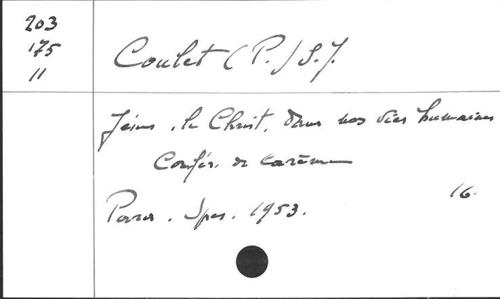 203
175
11
Coulet (P.) S.J.
Jésus, le Christ, dans nos vies humaines
Confér. de carême
16.
Paris. Spes. 1953.